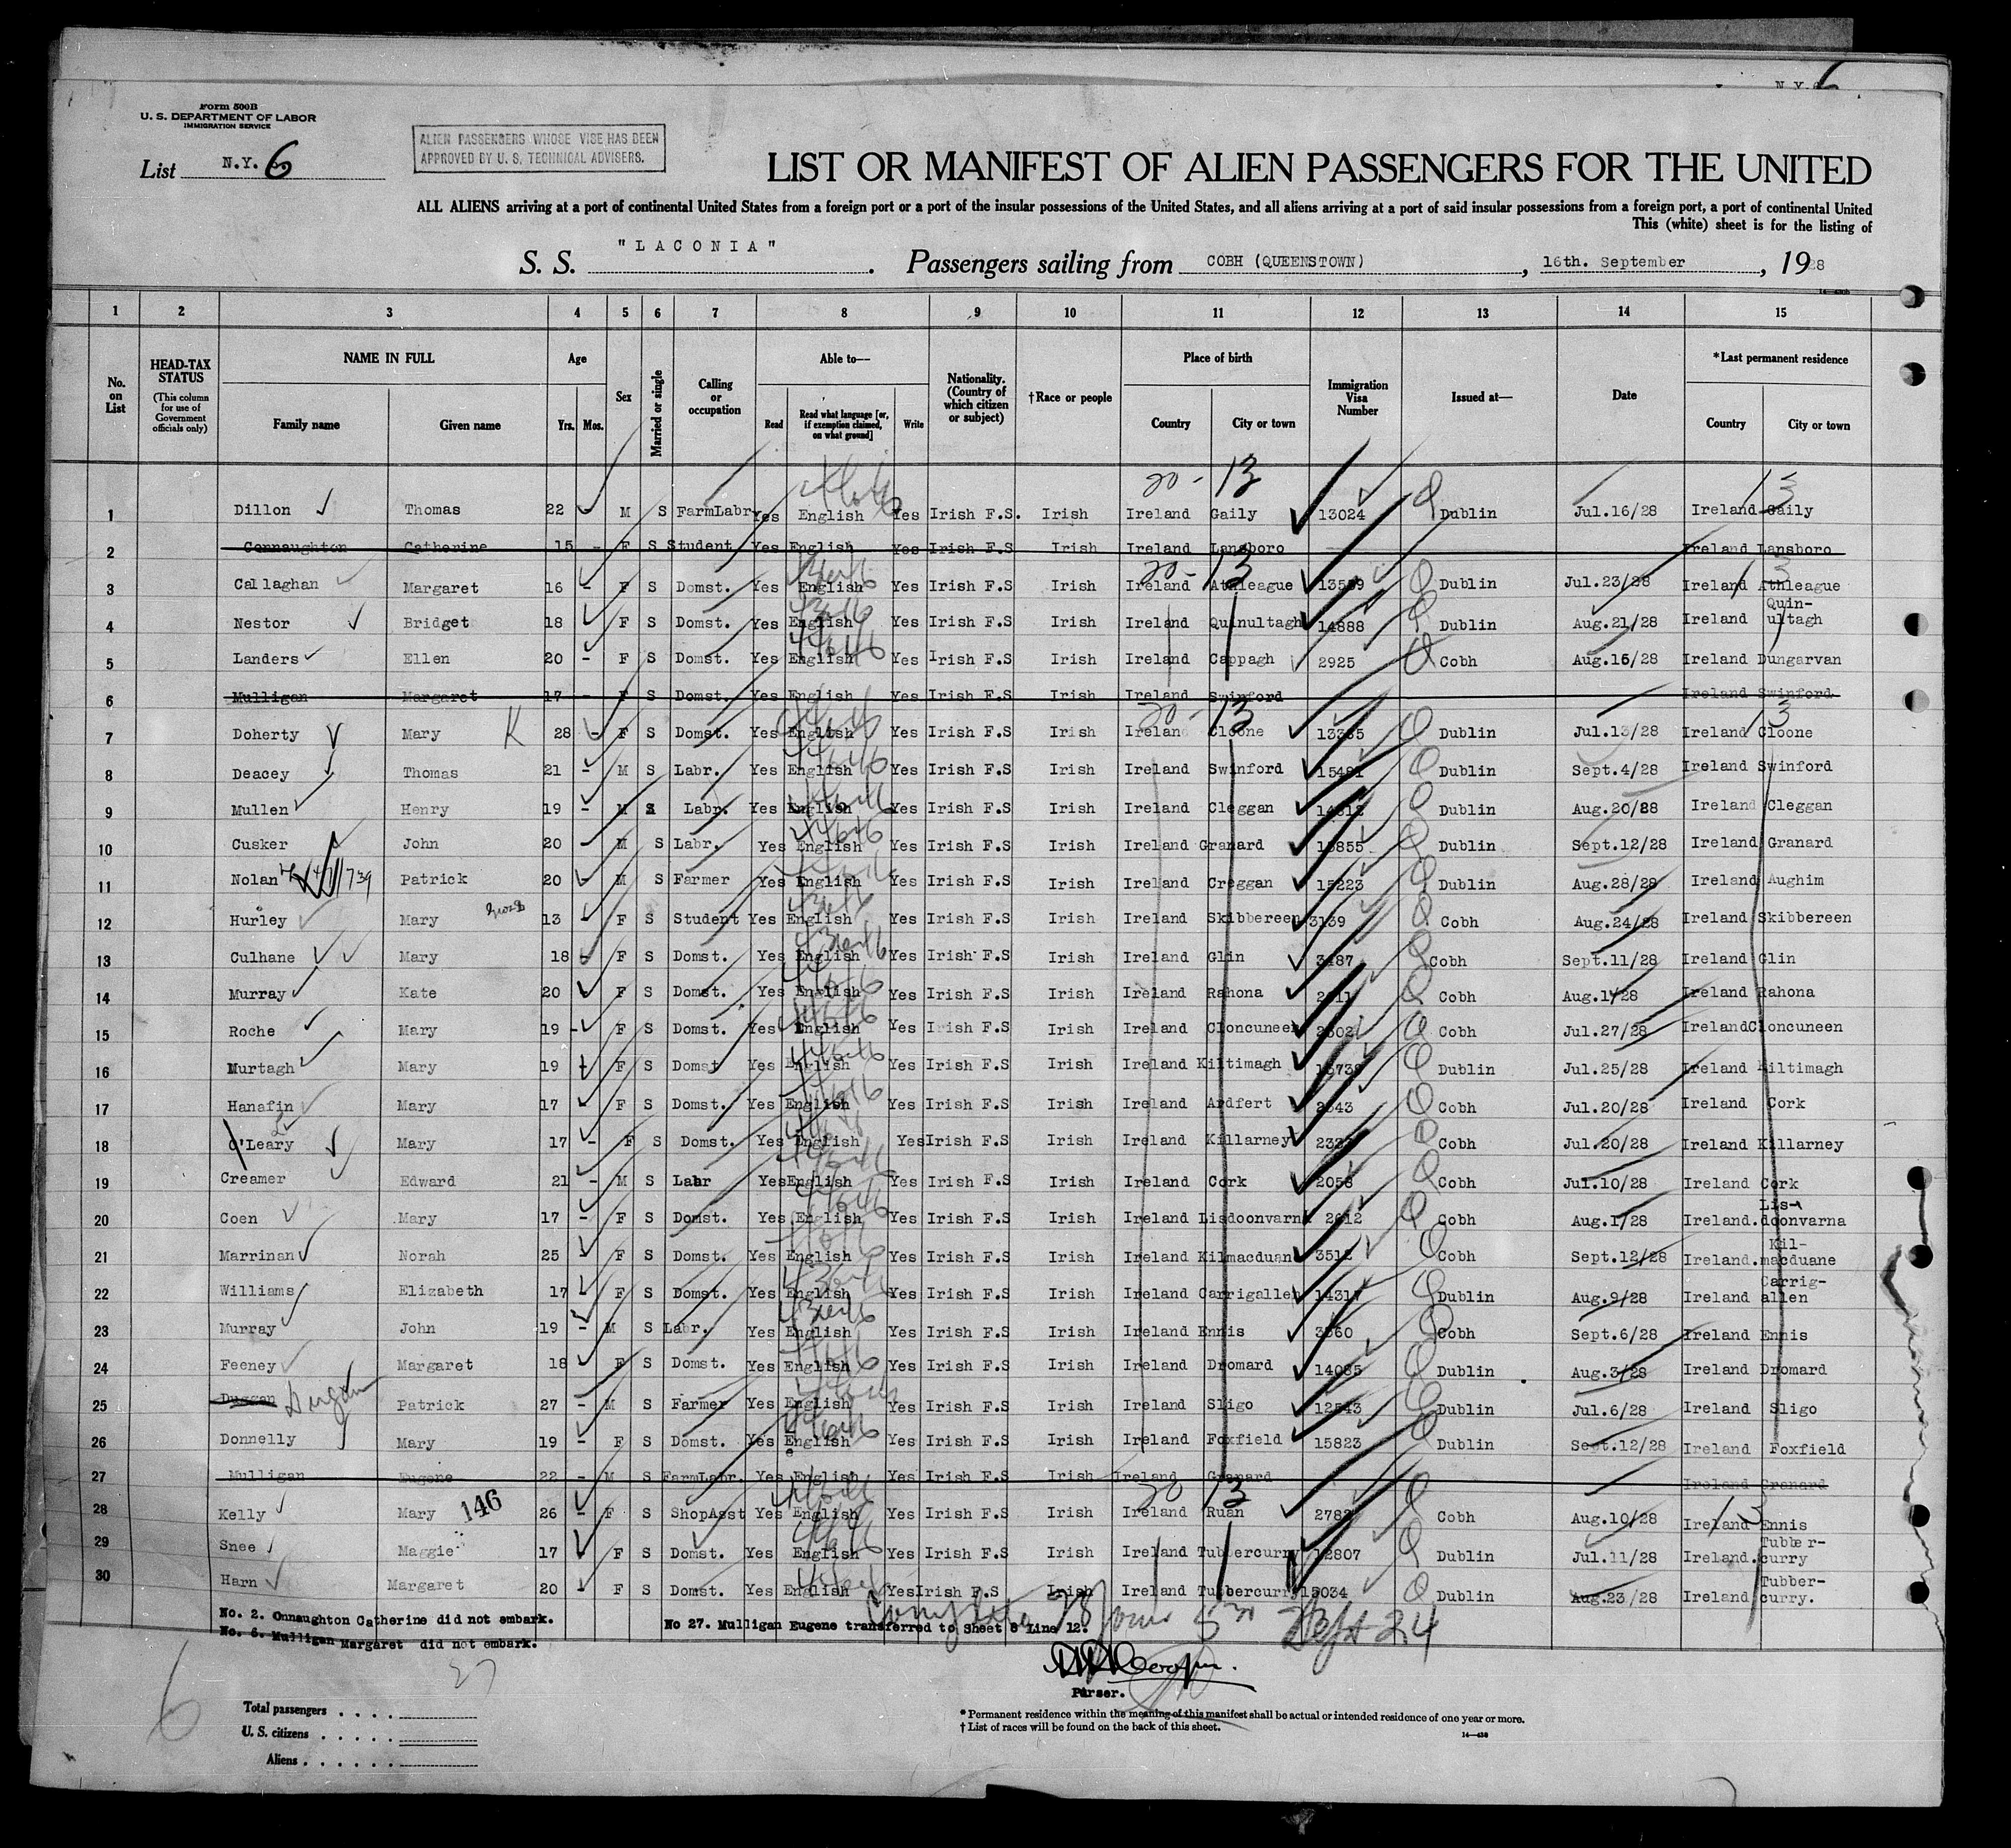 N.Y. 6
Form 500B
U. S. DEPARTMENT OF LABOR
IMMIGRATION SERVICE
List N.Y. 6
ALIEN PASSENGERS WHOSE VISE HAS BEEN
APPROVED BY U. S. TECHNICAL ADVISERS.
LIST OR MANIFEST OF ALIEN PASSENGERS FOR THE UNITED
ALL ALIENS arriving at a port of continental United States from a foreign port or a port of the insular possessions of the United States, and all aliens arriving at a port of said insular possessions from a foreign port, a port of continental United
This (white) sheet is for the listing of
S. S. "LACONIA" . Passengers sailing from COBH (QUEENSTOWN) , 16th. September , 1928
1 2 3 4 5 6 7 8 9 10 11 12 13 14 15
No. on List
HEAD-TAX STATUS (This column for use of Government officials only)
NAME IN FULL Family name Given name
Age Yrs. Mos.
Sex
Married or single
Calling or occupation
Able to— Read Read what language [or, if exemption claimed, on what ground] Write
Nationality. (Country of which citizen or subject)
†Race or people
Place of birth Country City or town
Immigration Visa Number
Issued at—
Date
*Last permanent residence Country City or town
20 - 13 13
1 Dillon Thomas 22 M S FarmLabr Yes English Yes Irish F.S. Irish Ireland Gaily 13024 Dublin Jul.16/28 Ireland Gaily
2 Connaughton Catherine 15 - F S Student Yes English Yes Irish F.S Irish Ireland Lansboro Ireland Lansboro
20 - 13 13
3 Callaghan Margaret 16 - F S Domst. Yes English Yes Irish F.S Irish Ireland Athleague Dublin Jul.23/28 Ireland Athleague
4 Nestor Bridget 18 F S Domst. Yes English Yes Irish F.S Irish Ireland Quinultagh 14888 Dublin Aug.21/28 Ireland Quin-
ultagh
5 Landers Ellen 20 - F S Domst. Yes English Yes Irish F.S Irish Ireland Cappagh 2925 Cobh Aug.16/28 Ireland Dungarvan
6 Mulligan Margaret 17 - F S Domst. Yes English Yes Irish F.S Irish Ireland Swinford Ireland Swinford
20 - 13 13
7 Doherty Mary K 28 - F S Domst. Yes English Yes Irish F.S Irish Ireland Cloone Dublin Jul.13/28 Ireland Cloone
8 Deacey Thomas 21 - M S Labr. Yes English Yes Irish F.S Irish Ireland Swinford 15491 Dublin Sept.4/28 Ireland Swinford
9 Mullen Henry 19 - M S Labr. Yes English Yes Irish F.S Irish Ireland Cleggan Dublin Aug.20/28 Ireland Cleggan
10 Cusker John 20 - M S Labr. Yes English Yes Irish F.S Irish Ireland Granard 15855 Dublin Sept.12/28 Ireland Granard
11 Nolan Patrick 20 M S Farmer Yes English Yes Irish F.S Irish Ireland Creggan 15223 Dublin Aug.28/28 Ireland Aughim
12 Hurley Mary 13 - F S Student Yes English Yes Irish F.S Irish Ireland Skibbereen 3139 Cobh Aug.24/28 Ireland Skibbereen
13 Culhane Mary 18 - F S Domst. Yes English Yes Irish F.S Irish Ireland Glin 3487 Cobh Sept.11/28 Ireland Glin
14 Murray Kate 20 F S Domst. Yes English Yes Irish F.S Irish Ireland Rahona Cobh Aug.1/28 Ireland Rahona
15 Roche Mary 19 - F S Domst. Yes English Yes Irish F.S Irish Ireland Cloncuneen Cobh Jul.27/28 Ireland Cloncuneen
16 Murtagh Mary 19 F S Domst Yes English Yes Irish F.S Irish Ireland Kiltimagh Dublin Jul.25/28 Ireland Kiltimagh
17 Hanafin Mary 17 - F S Domst. Yes English Yes Irish F.S Irish Ireland Ardfert Cobh Jul.20/28 Ireland Cork
18 O'Leary Mary 17 - F S Domst. Yes English Yes Irish F.S Irish Ireland Killarney Cobh Jul.20/28 Ireland Killarney
19 Creamer Edward 21 - M S Labr Yes English Yes Irish F.S Irish Ireland Cork 2058 Cobh Jul.10/28 Ireland Cork
20 Coen Mary 17 - F S Domst. Yes English Yes Irish F.S Irish Ireland Lisdoonvarna 2612 Cobh Aug.1/28 Ireland. Lis-
doonvarna
21 Marrinan Norah 25 F S Domst. Yes English Yes Irish F.S Irish Ireland Kilmacduane 3512 Cobh Sept.12/28 Ireland. Kil-
macduane
22 Williams Elizabeth 17 F S Domst. Yes English Yes Irish F.S Irish Ireland Carrigallen 14317 Dublin Aug.9/28 Ireland Carrig-
allen
23 Murray John 19 - M S Labr. Yes English Yes Irish F.S Irish Ireland Ennis 3360 Cobh Sept.6/28 Ireland Ennis
24 Feeney Margaret 18 F S Domst. Yes English Yes Irish F.S Irish Ireland Dromard 14085 Dublin Aug.3/28 Ireland Dromard
25 Duggan Patrick 27 - M S Farmer Yes English Yes Irish F.S Irish Ireland Sligo 12543 Dublin Jul.6/28 Ireland Sligo
26 Donnelly Mary 19 - F S Domst. Yes English Yes Irish F.S Irish Ireland Foxfield 15823 Dublin Sept.12/28 Ireland Foxfield
27 Mulligan Eugene 22 - M S FarmLabr. Yes English Yes Irish F.S Irish Ireland Granard Ireland Granard
20 13 13
28 Kelly Mary 146 26 - F S ShopAsst Yes English Yes Irish F.S Irish Ireland Ruan Cobh Aug.10/28 Ireland Ennis
29 Snee Maggie 17 F S Domst. Yes English Yes Irish F.S Irish Ireland Tubbercurry 12807 Dublin Jul.11/28 Ireland. Tubber-
curry
30 Harn Margaret 20 - F S Domst. Yes English Yes Irish F.S Irish Ireland Tubbercurry 15034 Dublin Aug.23/28 Ireland Tubber-
curry.
No. 2. Onnaughton Catherine did not embark.
No. 6. Mulligan Margaret did not embark.
No 27. Mulligan Eugene transferred to Sheet 8 Line 12.
Sept 24
27
6
Purser.
Total passengers
U. S. citizens
Aliens
* Permanent residence within the meaning of this manifest shall be actual or intended residence of one year or more.
† List of races will be found on the back of this sheet.
14—438